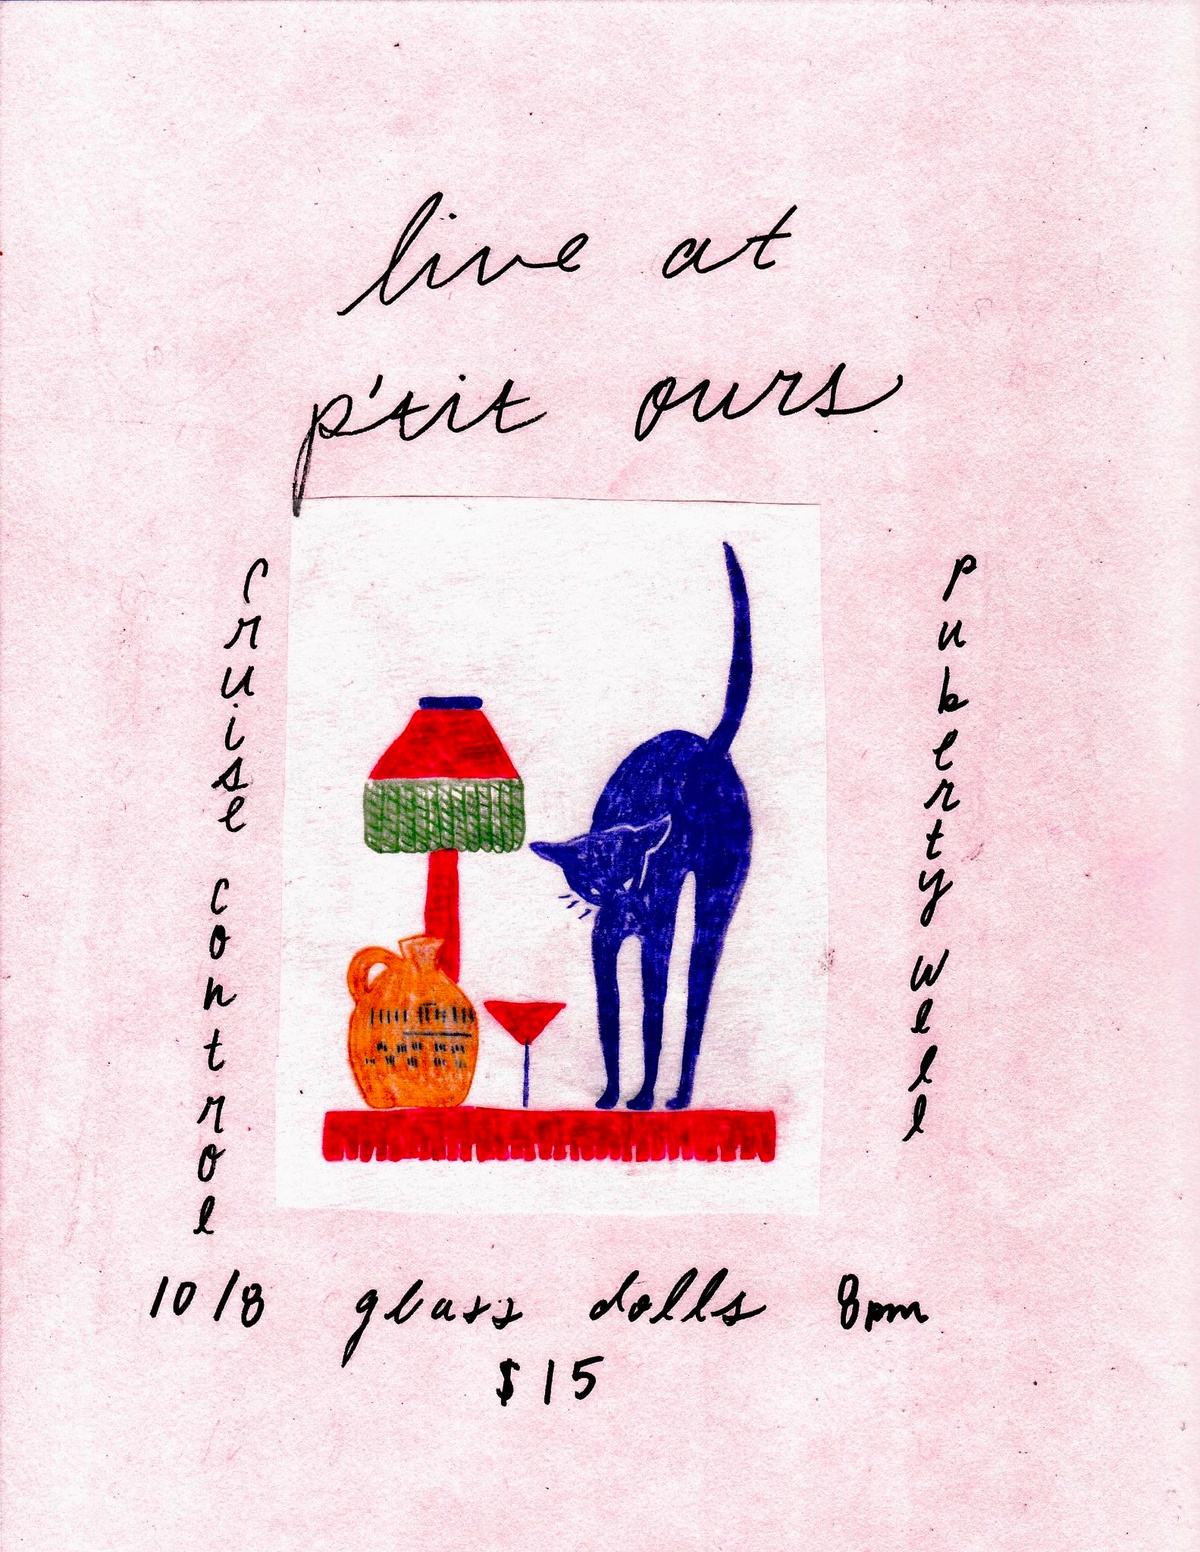 live at
p'tit ours
cruise control
puberty well
10/8 glass dolls 8pm
$15